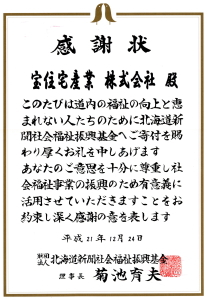 感謝状
宝住宅産業 株式会社 殿
このたびは道内の福祉の向上と恵
まれない人たちのために北海道新
聞社会福祉振興基金へご寄付を賜
わり厚くお礼を申しあげます
あなたのご意思を十分に尊重し社
会福祉事業の振興のため有意義に
活用させていただきますことをお
約束し深く感謝の意を表します
平成21年12月24日
財団法人 北海道新聞社会福祉振興基金
理事長 菊池育夫